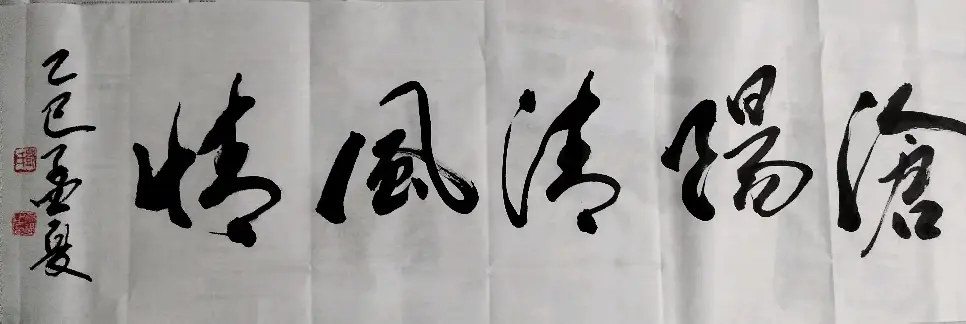 滄陽清風情
乙巳孟夏